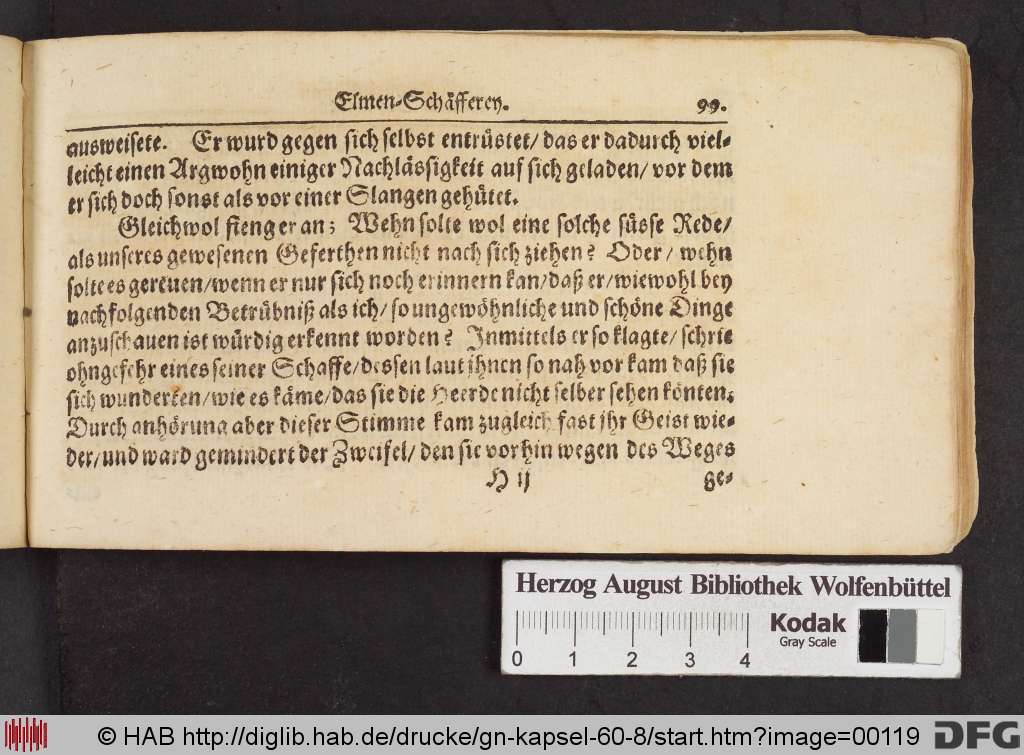 Elmen-Schäfferey. 99.
ausweisete. Er wurd gegen sich selbst entrüstet/ das er dadurch viel-
leicht einen Argwohn einiger Nachlässigkeit auf sich geladen/ vor dem
er sich doch sonst als vor einer Slangen gehütet.
Gleichwol fieng er an; Wehn solte wol eine solche süsse Rede/
als unseres gewesenen Geferthen nicht nach sich ziehen? Oder/ wehn
solte es gereuen/ wenn er nur sich noch erinnern kan/ daß er/ wiewohl bey
nachfolgenden Betrübniß als ich/ so ungewöhnliche und schöne Dinge
anzuschauen ist würdig erkennt worden? Inmittels er so klagte/ schrie
ohngefehr eines seiner Schaffe/ dessen laut ihnen so nah vor kam daß sie
sich wunderten/ wie es käme/ das sie die Heerde nicht selber sehen könten.
Durch anhörung aber dieser Stimme kam zugleich fast ihr Geist wie-
der/ und ward gemindert der Zweifel/ den sie vorhin wegen des Weges
H ij ge-
Herzog August Bibliothek Wolfenbüttel
Kodak
Gray Scale
0 1 2 3 4
© HAB http://diglib.hab.de/drucke/gn-kapsel-60-8/start.htm?image=00119 DFG